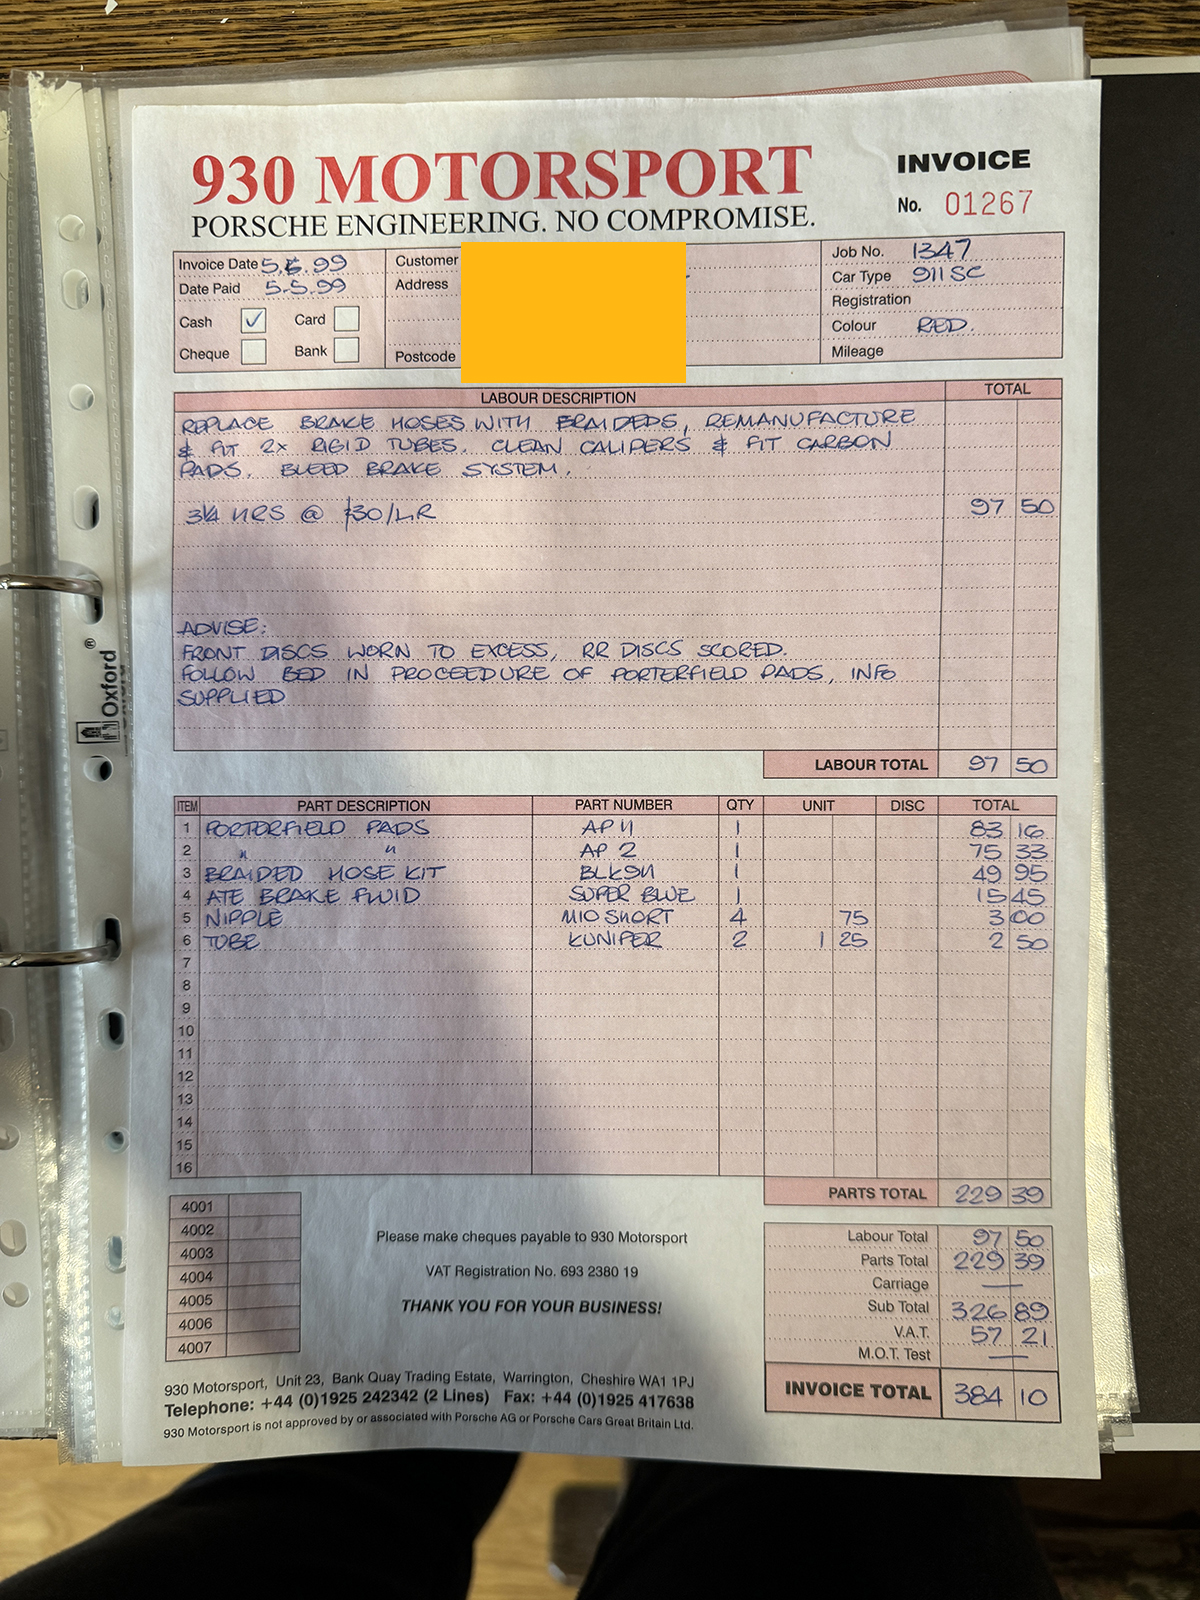 930 MOTORSPORT
PORSCHE ENGINEERING. NO COMPROMISE.
INVOICE
No. 01267
Invoice Date 5.5.99
Date Paid 5.5.99
Cash ✓ Card
Cheque Bank
Customer
Address
Postcode
Job No. 1347
Car Type 911 SC
Registration
Colour RED.
Mileage
LABOUR DESCRIPTION TOTAL
REPLACE BRAKE HOSES WITH BRAIDEDS, REMANUFACTURE
& FIT 2x RIGID TUBES. CLEAN CALIPERS & FIT CARBON
PADS. BLEED BRAKE SYSTEM.
3¼ HRS @ £30/HR 97 50
ADVISE:
FRONT DISCS WORN TO EXCESS, RR DISCS SCORED.
FOLLOW BED IN PROCEEDURE OF PORTERFIELD PADS, INFO
SUPPLIED
LABOUR TOTAL 97 50
ITEM PART DESCRIPTION PART NUMBER QTY UNIT DISC TOTAL
1 PORTERFIELD PADS AP11 1 83 16
2 " " AP 2 1 75 33
3 BRAIDED HOSE KIT BLK911 1 49 95
4 ATE BRAKE FLUID SUPER BLUE 1 15 45
5 NIPPLE M10 SHORT 4 75 3 00
6 TUBE KUNIFER 2 1 25 2 50
7
8
9
10
11
12
13
14
15
16
PARTS TOTAL 229 39
4001
4002
4003
4004
4005
4006
4007
Please make cheques payable to 930 Motorsport
VAT Registration No. 693 2380 19
THANK YOU FOR YOUR BUSINESS!
Labour Total 97 50
Parts Total 229 39
Carriage —
Sub Total 326 89
V.A.T. 57 21
M.O.T. Test —
INVOICE TOTAL 384 10
930 Motorsport, Unit 23, Bank Quay Trading Estate, Warrington, Cheshire WA1 1PJ
Telephone: +44 (0)1925 242342 (2 Lines) Fax: +44 (0)1925 417638
930 Motorsport is not approved by or associated with Porsche AG or Porsche Cars Great Britain Ltd.
Oxford®